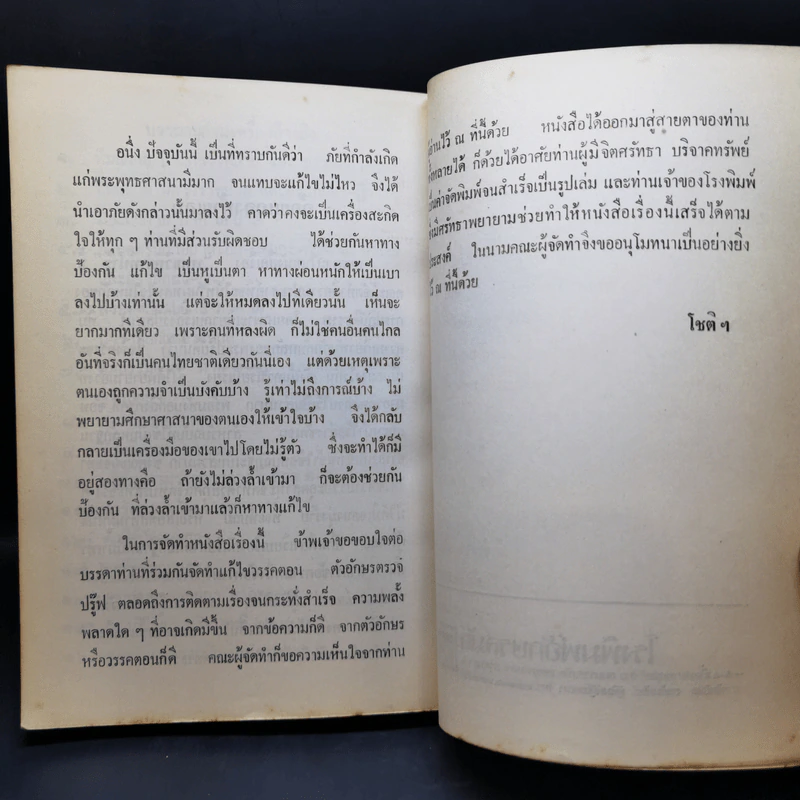 อนึ่ง ปัจจุบันนี้ เป็นที่ทราบกันดีว่า ภัยที่กำลังเกิด
แก่พระพุทธศาสนามีมาก จนแทบจะแก้ไขไม่ไหว จึงได้
นำเอาภัยดังกล่าวนั้นมาลงไว้ คาดว่าคงจะเป็นเครื่องสะกิด
ใจให้ทุก ๆ ท่านที่มีส่วนรับผิดชอบ ได้ช่วยกันหาทาง
ป้องกัน แก้ไข เป็นหูเป็นตา หาทางผ่อนหนักให้เป็นเบา
ลงไปบ้างเท่านั้น แต่จะให้หมดลงไปทีเดียวนั้น เห็นจะ
ยากมากทีเดียว เพราะคนที่หลงผิด ก็ไม่ใช่คนอื่นคนไกล
อันที่จริงก็เป็นคนไทยชาติเดียวกันนี่เอง แต่ด้วยเหตุเพราะ
ตนเองถูกความจำเป็นบังคับบ้าง รู้เท่าไม่ถึงการณ์บ้าง ไม่
พยายามศึกษาศาสนาของตนเองให้เข้าใจบ้าง จึงได้กลับ
กลายเป็นเครื่องมือของเขาไปโดยไม่รู้ตัว ซึ่งจะทำได้ก็มี
อยู่สองทางคือ ถ้ายังไม่ล่วงล้ำเข้ามา ก็จะต้องช่วยกัน
ป้องกัน ที่ล่วงล้ำเข้ามาแล้วก็หาทางแก้ไข
ในการจัดทำหนังสือเรื่องนี้ ข้าพเจ้าขอขอบใจต่อ
บรรดาท่านที่ร่วมกันจัดทำแก้ไขวรรคตอน ตัวอักษรตรวจ
ปรู๊ฟ ตลอดถึงการติดตามเรื่องจนกระทั่งสำเร็จ ความพลั้ง
พลาดใด ๆ ที่อาจเกิดมีขึ้น จากข้อความก็ดี จากตัวอักษร
หรือวรรคตอนก็ดี คณะผู้จัดทำก็ขอความเห็นใจจากท่าน
ไว้ ณ ที่นี้ด้วย หนังสือได้ออกมาสู่สายตาของท่าน
ได้ ก็ด้วยได้อาศัยท่านผู้มีจิตศรัทธา บริจาคทรัพย์
เป็นค่าจัดพิมพ์จนสำเร็จเป็นรูปเล่ม และท่านเจ้าของโรงพิมพ์
มีศรัทธาพยายามช่วยทำให้หนังสือเรื่องนี้เสร็จได้ตาม
ประสงค์ ในนามคณะผู้จัดทำจึงขออนุโมทนาเป็นอย่างยิ่ง
ไว้ ณ ที่นี้ด้วย
โชติ ๆ